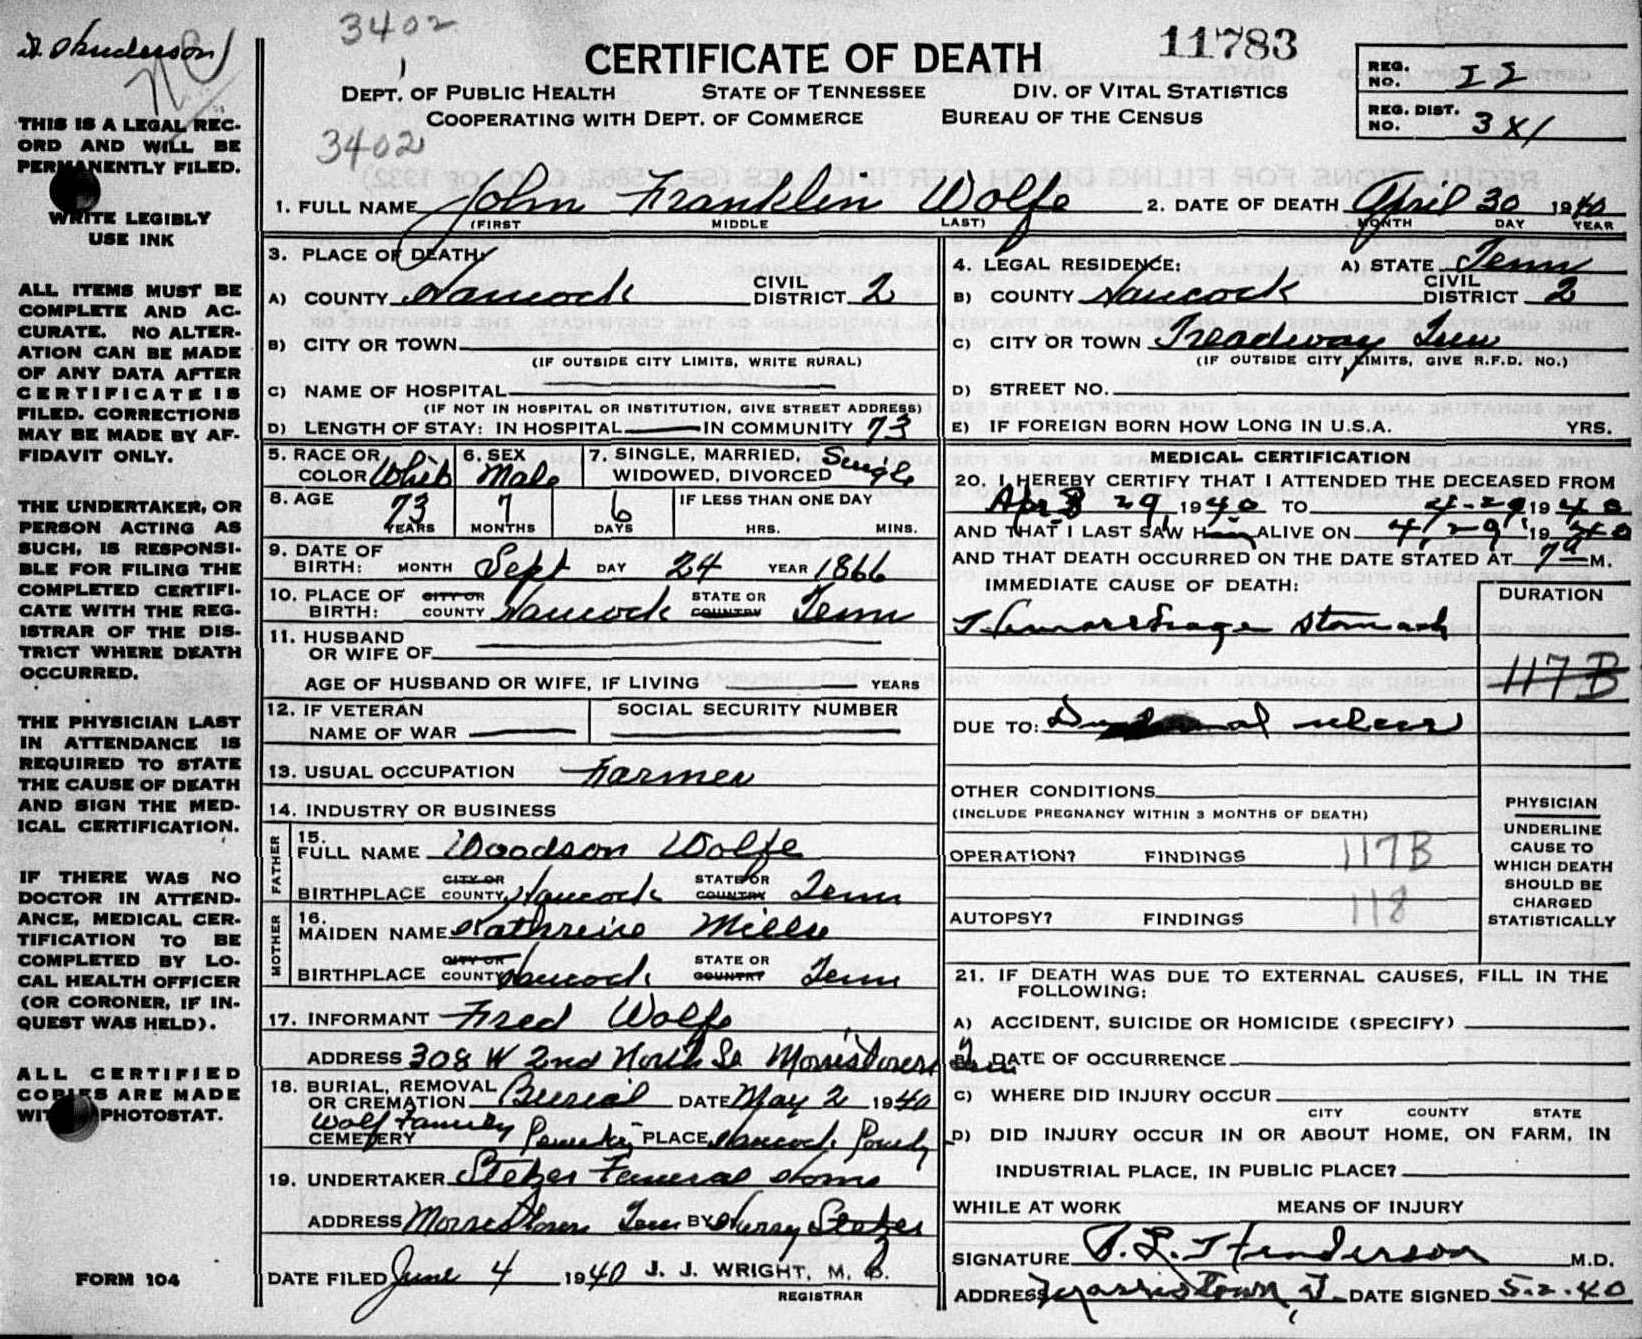 3402
CERTIFICATE OF DEATH
11783
DEPT. OF PUBLIC HEALTH STATE OF TENNESSEE DIV. OF VITAL STATISTICS
COOPERATING WITH DEPT. OF COMMERCE BUREAU OF THE CENSUS
REG. NO.
REG. DIST. NO.
3402
THIS IS A LEGAL REC-
ORD AND WILL BE
PERMANENTLY FILED.
WRITE LEGIBLY
USE INK
ALL ITEMS MUST BE
COMPLETE AND AC-
CURATE. NO ALTER-
ATION CAN BE MADE
OF ANY DATA AFTER
CERTIFICATE IS
FILED. CORRECTIONS
MAY BE MADE BY AF-
FIDAVIT ONLY.
THE UNDERTAKER, OR
PERSON ACTING AS
SUCH, IS RESPONSI-
BLE FOR FILING THE
COMPLETED CERTIFI-
CATE WITH THE REG-
ISTRAR OF THE DIS-
TRICT WHERE DEATH
OCCURRED.
THE PHYSICIAN LAST
IN ATTENDANCE IS
REQUIRED TO STATE
THE CAUSE OF DEATH
AND SIGN THE MED-
ICAL CERTIFICATION.
IF THERE WAS NO
DOCTOR IN ATTEND-
ANCE, MEDICAL CER-
TIFICATION TO BE
COMPLETED BY LO-
CAL HEALTH OFFICER
(OR CORONER, IF IN-
QUEST WAS HELD).
ALL CERTIFIED
COPIES ARE MADE
WITH PHOTOSTAT.
FORM 104
1. FULL NAME John Franklin Wolfe 2. DATE OF DEATH April 30 1940
(FIRST MIDDLE LAST) MONTH DAY YEAR
3. PLACE OF DEATH:
A) COUNTY Hancock CIVIL DISTRICT 2
B) CITY OR TOWN
(IF OUTSIDE CITY LIMITS, WRITE RURAL)
C) NAME OF HOSPITAL
(IF NOT IN HOSPITAL OR INSTITUTION, GIVE STREET ADDRESS)
D) LENGTH OF STAY: IN HOSPITAL IN COMMUNITY 73
4. LEGAL RESIDENCE: A) STATE Tenn
B) COUNTY Hancock CIVIL DISTRICT 2
C) CITY OR TOWN Treadway Tenn
(IF OUTSIDE CITY LIMITS, GIVE R.F.D. NO.)
D) STREET NO.
E) IF FOREIGN BORN HOW LONG IN U.S.A. YRS.
5. RACE OR COLOR White 6. SEX Male 7. SINGLE, MARRIED, WIDOWED, DIVORCED Single
8. AGE 73 YEARS 7 MONTHS 6 DAYS IF LESS THAN ONE DAY HRS. MINS.
9. DATE OF BIRTH: MONTH Sept DAY 24 YEAR 1866
10. PLACE OF BIRTH: CITY OR COUNTY Hancock STATE OR COUNTRY Tenn
11. HUSBAND OR WIFE OF
AGE OF HUSBAND OR WIFE, IF LIVING YEARS
12. IF VETERAN NAME OF WAR SOCIAL SECURITY NUMBER
13. USUAL OCCUPATION Farmer
14. INDUSTRY OR BUSINESS
FATHER
15. FULL NAME Woodson Wolfe
BIRTHPLACE CITY OR COUNTY Hancock STATE OR COUNTRY Tenn
MOTHER
16. MAIDEN NAME Kathreine Mills
BIRTHPLACE CITY OR COUNTY Hancock STATE OR COUNTRY Tenn
17. INFORMANT Fred Wolfe
ADDRESS 308 W 2nd North St Morristown Tenn
18. BURIAL, REMOVAL OR CREMATION Burial DATE May 2 1940
CEMETERY Wolf Family PLACE Hancock County
19. UNDERTAKER Stetzer Funeral Home
ADDRESS Morristown Tenn BY Harry Stetzer
DATE FILED June 4 1940 J. J. WRIGHT, M. D.
REGISTRAR
MEDICAL CERTIFICATION
20. I HEREBY CERTIFY THAT I ATTENDED THE DECEASED FROM
29, 1940 TO 4-29 1940
AND THAT I LAST SAW Him ALIVE ON 4, 29, 1940
AND THAT DEATH OCCURRED ON THE DATE STATED AT 7 a M.
IMMEDIATE CAUSE OF DEATH: DURATION
Hemorrhage stomach
117B
DUE TO: ulcer
OTHER CONDITIONS
(INCLUDE PREGNANCY WITHIN 3 MONTHS OF DEATH)
OPERATION? FINDINGS 117B
AUTOPSY? FINDINGS 118
PHYSICIAN
UNDERLINE
CAUSE TO
WHICH DEATH
SHOULD BE
CHARGED
STATISTICALLY
21. IF DEATH WAS DUE TO EXTERNAL CAUSES, FILL IN THE
FOLLOWING:
A) ACCIDENT, SUICIDE OR HOMICIDE (SPECIFY)
B) DATE OF OCCURRENCE
C) WHERE DID INJURY OCCUR
CITY COUNTY STATE
D) DID INJURY OCCUR IN OR ABOUT HOME, ON FARM, IN
INDUSTRIAL PLACE, IN PUBLIC PLACE?
WHILE AT WORK MEANS OF INJURY
SIGNATURE Henderson M.D.
ADDRESS Morristown, T. DATE SIGNED 5-2-40